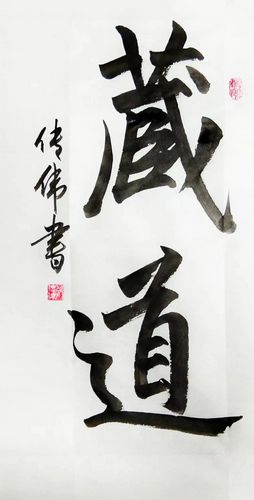 藏道
传伟書